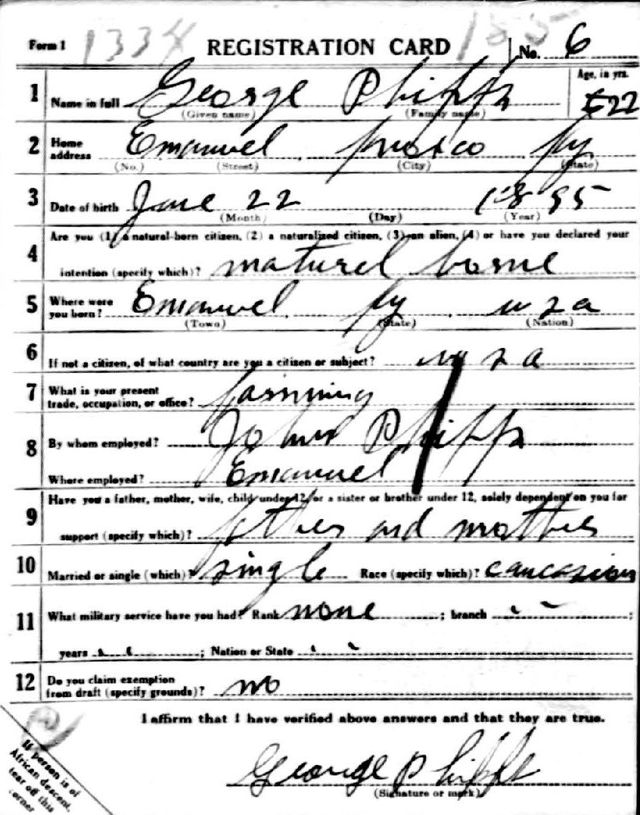 Form 1 1334 REGISTRATION CARD No. 6
1 Name in full George Phipps Age, in yrs. 22
(Given name) (Family name)
2 Home address Emanuel Ky
(No.) (Street) (City) (State)
3 Date of birth June 22 1895
(Month) (Day) (Year)
4 Are you (1) a natural-born citizen, (2) a naturalized citizen, (3) an alien, (4) or have you declared your
intention (specify which)? naturel borne
5 Where were you born? Emanuel Ky usa
(Town) (State) (Nation)
6 If not a citizen, of what country are you a citizen or subject? usa
7 What is your present trade, occupation, or office? farming
8 By whom employed? John Phipps
Where employed? Emanuel
9 Have you a father, mother, wife, child under 12, or a sister or brother under 12, solely dependent on you for
support (specify which)? father and mother
10 Married or single (which)? single Race (specify which)? caucasion
11 What military service have you had? Rank none ; branch " " ;
years " " ; Nation or State " "
12 Do you claim exemption from draft (specify grounds)? no
I affirm that I have verified above answers and that they are true.
George Phipps
(Signature or mark)
If person is of
African descent,
tear off this
corner